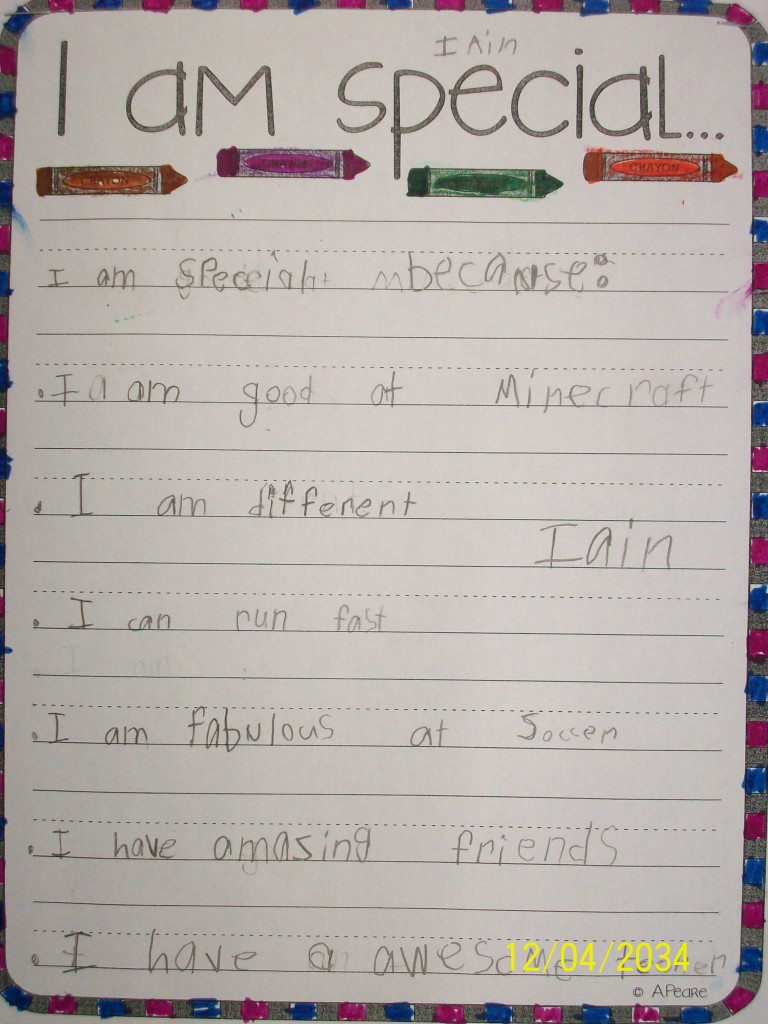 Iain
I am special...
CRAYON CRAYON CRAYON
I am special because:
. I a am good at Minecraft
. I am different
Iain
. I can run fast
I am
. I am fabulous at Soccer
. I have amasing friends
. I have a awesome
12/04/2034
© APeare